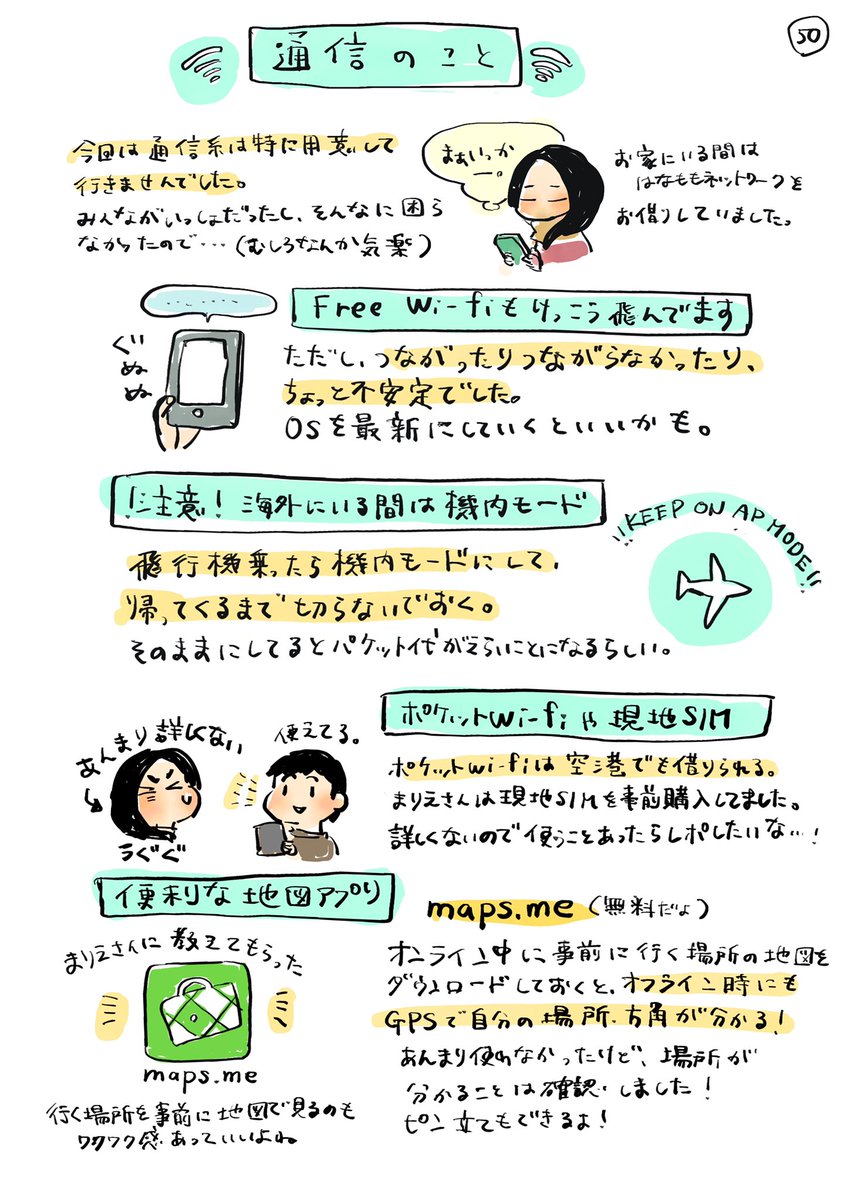 50
通信のこと
今回は通信系は特に用意して
行きませんでした。
みんながいっしょだったし、そんなに困ら
なかったので…(むしろなんか気楽)
まぁいっか
ー。
お家にいる間は
はなももネットワークを
お借りしていました。
Free Wi-fiもけっこう飛んでます
ぐぬぬ
ただし、つながったりつながらなかったり、
ちょっと不安定でした。
OSを最新にしていくといいかも。
!注意!海外にいる間は機内モード
飛行機乗ったら機内モードにして、
帰ってくるまで切らないでおく。
そのままにしてるとパケット代がえらいことになるらしい。
KEEP ON AP MODE!!
ポケットwi-fiや現地SIM
あんまり詳しくない
うぐぐ
使えてる。
ポケットwi-fiは空港でも借りられる。
まりえさんは現地SIMを事前購入してました。
詳しくないので使うことあったらレポしたいな…!
便利な地図アプリ
まりえさんに教えてもらった
maps.me
行く場所を事前に地図で見るのも
ワクワク感あっていいよね
maps.me(無料だよ)
オンライン中に事前に行く場所の地図を
ダウンロードしておくと、オフライン時にも
GPSで自分の場所、方角が分かる!
あんまり使わなかったけど、場所が
分かることは確認しました!
ピン立てもできるよ!